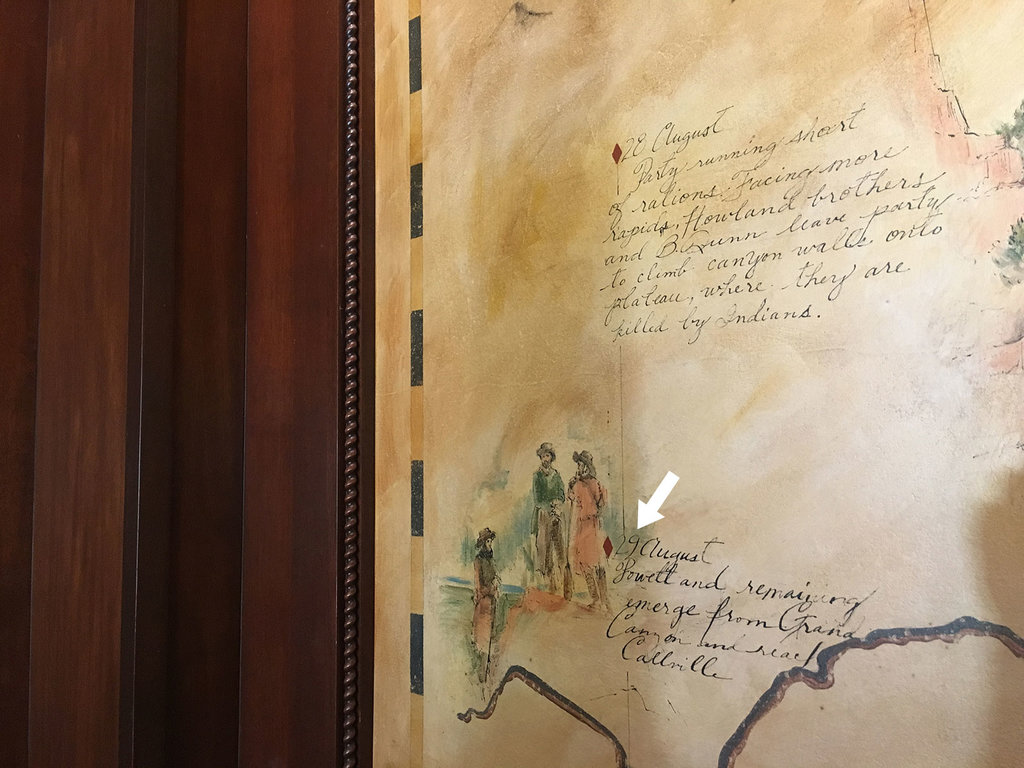 28 August
Party running short
of rations. Facing more
rapids, Howland brothers
and B. Dunn leave party
to climb canyon walls onto
plateau, where they are
killed by Indians.
29 August
Powell and remaining
emerge from Grand
Canyon and reach
Callville